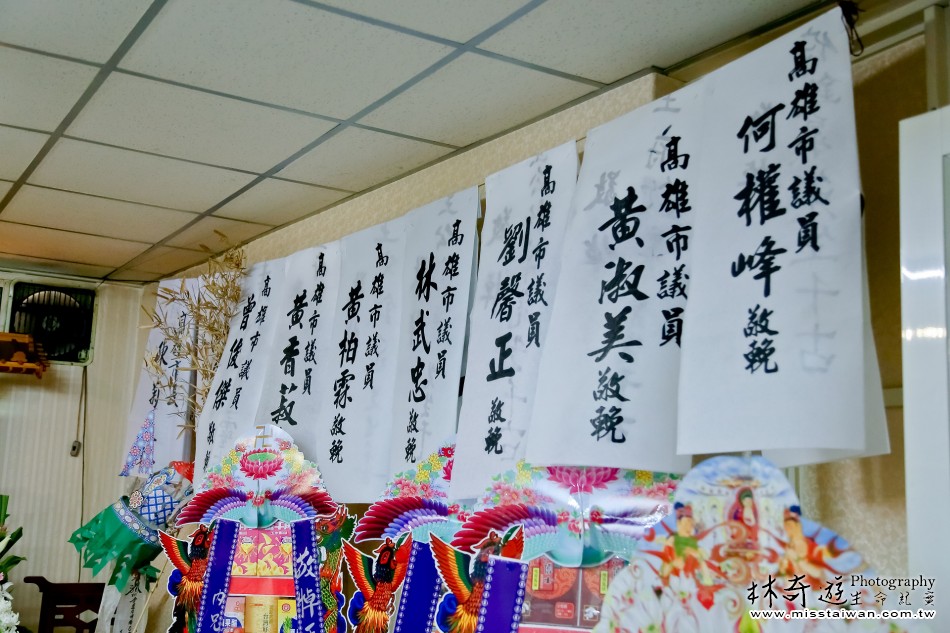 高雄市議員
何權峰敬輓
高雄市議員
黃淑美敬輓
高雄市議員
劉馨正敬輓
高雄市議員
林武忠敬輓
高雄市議員
黃柏霖敬輓
高雄市議員
黃香菽
高雄市議員
曾俊傑敬
林奇遊
Photography
生命記實
www.misstaiwan.com.tw